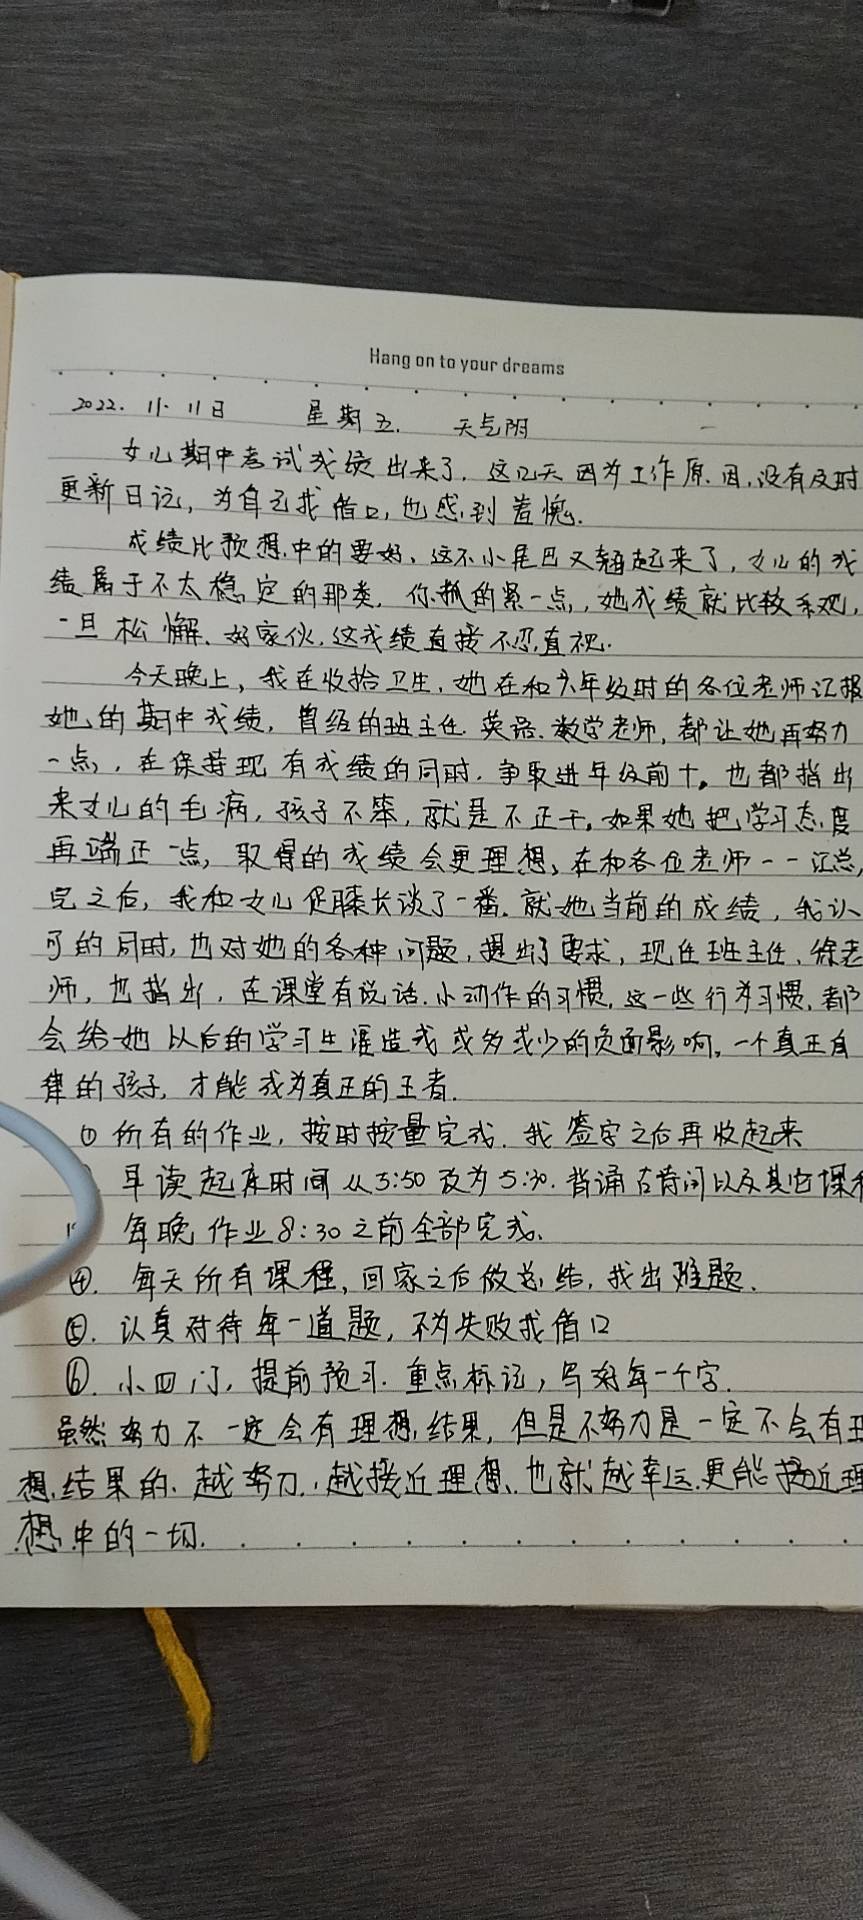 Hang on to your dreams
2022. 11. 11日 星期五. 天气阴
女儿期中考试成绩出来了，这几天因为工作原.因，没有及时
更新日记，为自己找借口，也感到羞愧.
成绩比预想中的要好、这不小尾巴又翘起来了，女儿的成
绩属于不太稳定的那类，你抓的紧一点，她成绩就比较乐观，
一旦松懈、好家伙，这成绩直接不忍直视.
今天晚上，我在收拾卫生，她在和六年级时的各位老师汇报
她的期中成绩，曾经的班主任.英语.数学老师，都让她再努力
一点，在保持现有成绩的同时，争取进年级前十。也都指出
来女儿的毛病，孩子不笨，就是不正干。如果她把学习态度
再端正一点，取得的成绩会更理想、在和各位老师一一汇总，
完之后，我和女儿促膝长谈了一番.就她当前的成绩，我认
可的同时，也对她的各种问题，提出了要求，现任班主任、徐老
师，也指出，在课堂有说话.小动作的习惯，这一些行为习惯，都
会给她以后的学习生涯造成或多或少的负面影响，一个真正自
律的孩子，才能成为真正的王者.
① 所有的作业，按时按量完成.我签字之后再收起来
早读起床时间从5:50改为5:30.背诵古诗词以及其它课
每晚作业8:30之前全部完成、
④. 每天所有课程，回家之后做总结，找出难题.
⑤. 认真对待每一道题，不为失败找借口
⑥. 小四门，提前预习.重点标记，写对每一个字.
虽然努力不一定会有理想结果，但是不努力是一定不会有理
想结果的、越努力，越接近理想、也就越幸运.更能接近理
想中的一切.